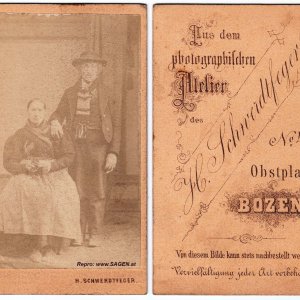 Repro: www.SAGEN.at
H. SCHWERDTFEGER
Aus dem
photographischen
Atelier
des
H. Schwerdtfeger
Obstpla
BOZEN
Von diesem Bilde kann stets nachbestellt we
Vervielfältigung jeder Art vorbeha